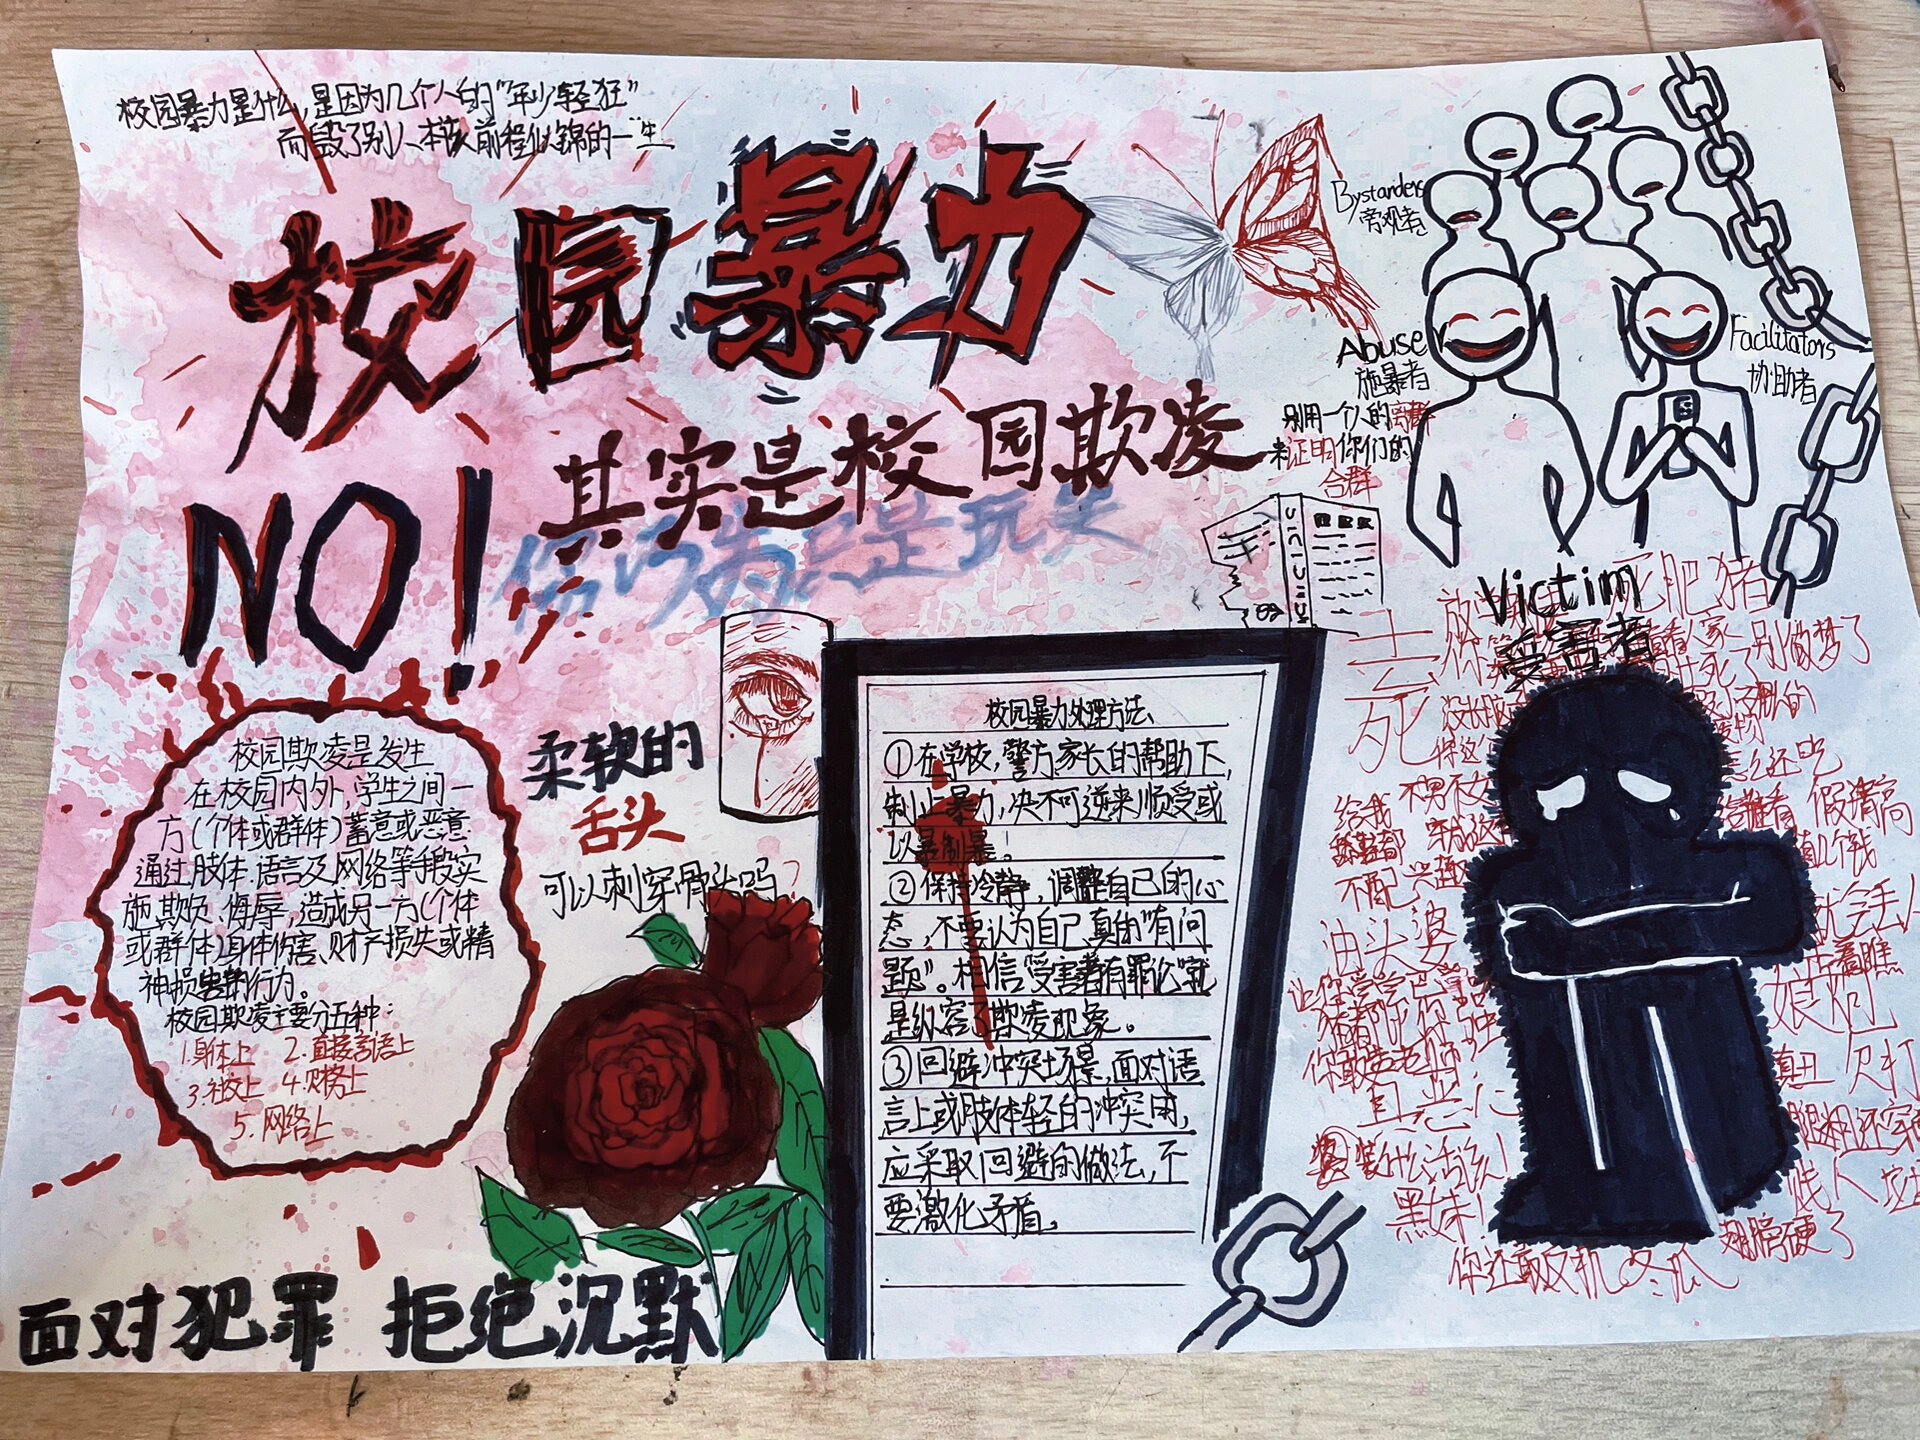 校园暴力是什么,是因为几个人的"年少轻狂"
而毁了别人本该前程似锦的一生
校园暴力
NO!
其实是校园欺凌
你以为只是玩笑
Bystanders
旁观者
Abuse
施暴者
Facilitators
协助者
别用一个人的离群
来证明你们的
合群
Victim
受害者
校园欺凌是发生
在校园内外,学生之间一
方(个体或群体)蓄意或恶意
通过肢体、语言及网络等手段实
施欺负、侮辱,造成另一方(个体
或群体)身体伤害、财产损失或精
神损害的行为。
校园欺凌主要分五种:
1.身体上 2.直接言语上
3.社交上 4.财务上
5.网络上
柔软的
舌头
可以刺穿骨头吗?
校园暴力处理方法
①在学校,警方家长的帮助下,
制止暴力,决不可逆来顺受或
以暴制暴!
②保持冷静,调整自己的心
态,不要认为自己真的"有问
题"。相信"受害者有罪论"就
是纵容了欺凌现象。
③回避冲突场景,面对语
言上或肢体轻的冲突用,
应采取回避的做法,不
要激化矛盾。
死肥猪
别做梦了
去死
怎么还吃
给我
不男不女
假清高
不配
兴趣
油头婆
娘炮
真丑
欠打
恶心
装什么清纯!
黑妹!
贱人
翅膀硬了
你还敢反抗
冬瓜
面对犯罪 拒绝沉默